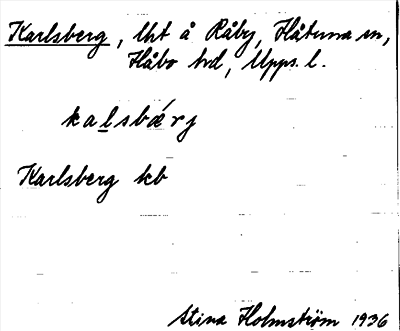 Karlsberg, lht å Råby, Håtuna sn,
Håbo hd, Upps. l.
kalsbǽrj
Karlsberg kb
Stina Holmström 1936